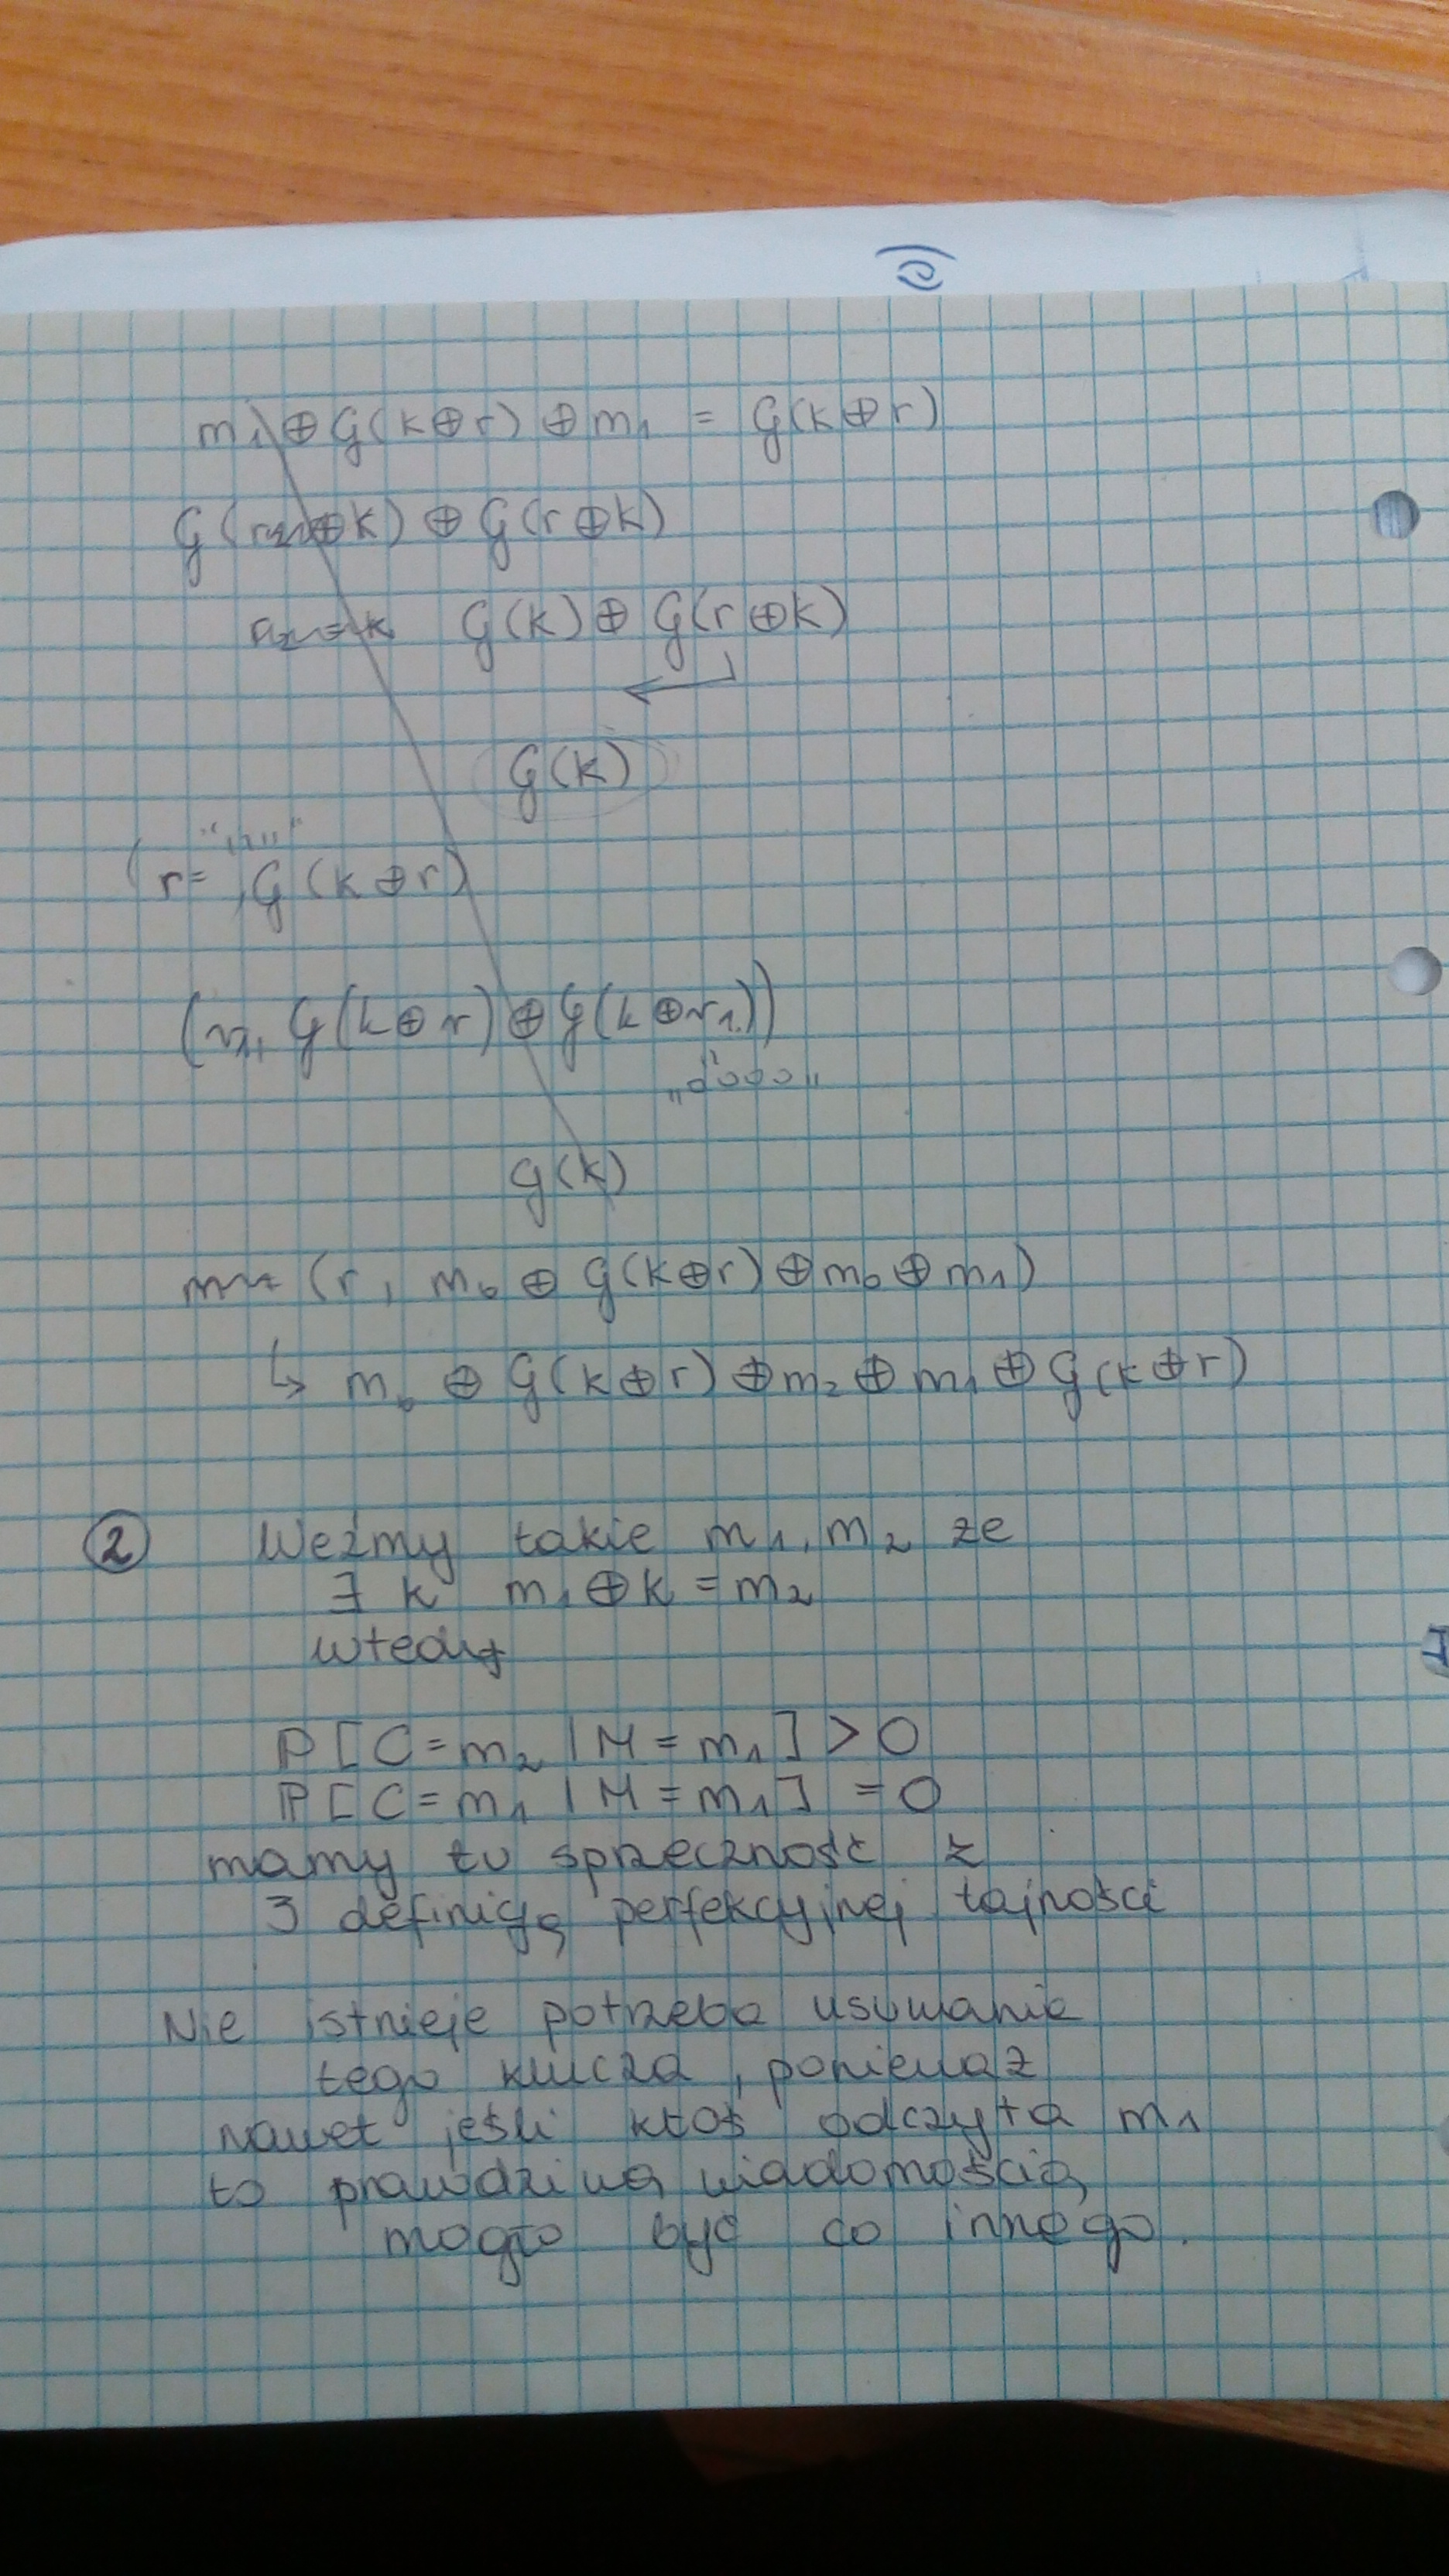 m₁ ⊕ G(k⊕r) ⊕ m₁ = G(k⊕r)
⊕k) ⊕ G(r⊕k)
G(k) ⊕ G(r⊕k)
G(k)
(r= , G(k⊕r)
G(k⊕r) ⊕ G(k⊕r₁))
„0000"
G(k)
(r, m₀ ⊕ G(k⊕r) ⊕ m₀ ⊕ m₁)
↳ m₀ ⊕ G(k⊕r) ⊕ m₂ ⊕ m₁ ⊕ G(k⊕r)
② Weźmy takie m₁, m₂ że
∃ k m₁ ⊕ k = m₂
wtedy
ℙ[C = m₂ | M = m₁] > 0
ℙ[C = m₁ | M = m₁] = 0
mamy tu sprzeczność z
3 definicją perfekcyjnej tajności
Nie istnieje potrzeba usuwania
tego klucza, ponieważ
nawet jeśli ktoś odczyta m₁
to prawdziwą wiadomością
mogło być co innego.